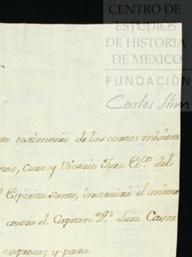 CENTRO DE
ESTUDIOS
DE HISTORIA
DE MEXICO
FUNDACIÓN
Carlos Slim
testimonio de las cartas
Cura, y Vicario Juez Ec.co del
Espiritu santo,
contra el Capitan D.n Luis
y para